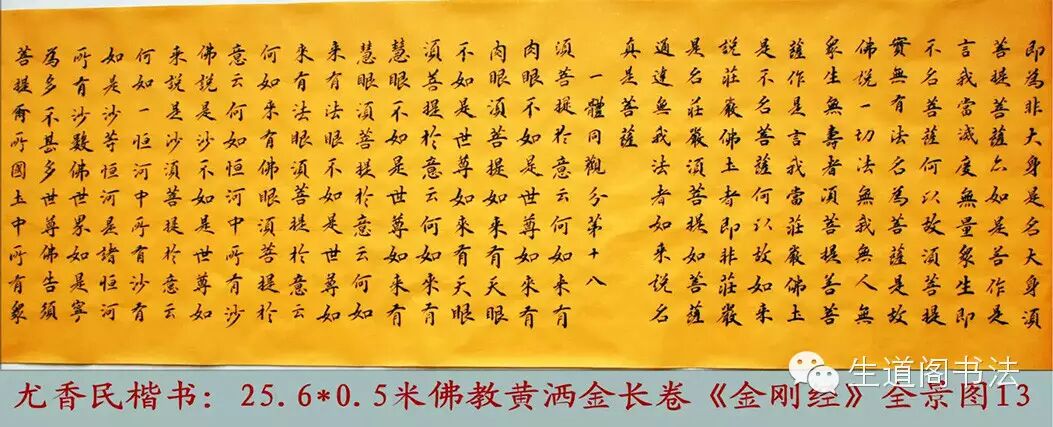 即為非大身是名大身須
菩提菩薩亦如是若作是
言我當滅度無量眾生即
不名菩薩何以故須菩提
實無有法名為菩薩是故
佛說一切法無我無人無
眾生無壽者須菩提若菩
薩作是言我當莊嚴佛土
是不名菩薩何以故如來
說莊嚴佛土者即非莊嚴
是名莊嚴須菩提如菩薩
通達無我法者如來說名
真是菩薩
一體同觀分第十八
須菩提於意云何如來有
肉眼不如是世尊如來有
肉眼須菩提如來有天眼
不如是世尊如來有天眼
須菩提於意云何如來有
慧眼不如是世尊如來有
慧眼須菩提於意云何如
來有法眼不如是世尊如
來有法眼須菩提於意云
何如來有佛眼須菩提於
意云何如恒河中所有沙
佛說是沙不如是世尊如
來說是沙須菩提於意云
何如一恒河中所有沙有
如是沙等恒河是諸恒河
所有沙數佛世界如是寧
為多不甚多世尊佛告須
菩提爾所國土中所有眾
生道阁书法
尤香民楷书：25.6*0.5米佛教黄洒金长卷《金刚经》全景图13